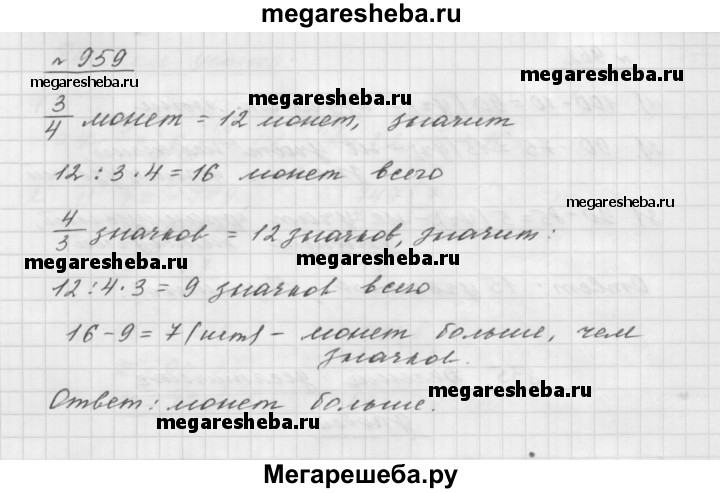 megaresheba.ru
№ 959
megaresheba.ru
megaresheba.ru
3/4 монет = 12 монет, значит
12 : 3 · 4 = 16 монет всего
megaresheba.ru
4/3 значков = 12 значков, значит:
megaresheba.ru
megaresheba.ru
12 : 4 · 3 = 9 значков всего
16 - 9 = 7 (шт) - монет больше, чем
значков.
megaresheba.ru
Ответ: монет больше.
megaresheba.ru
Мегарешеба.ру